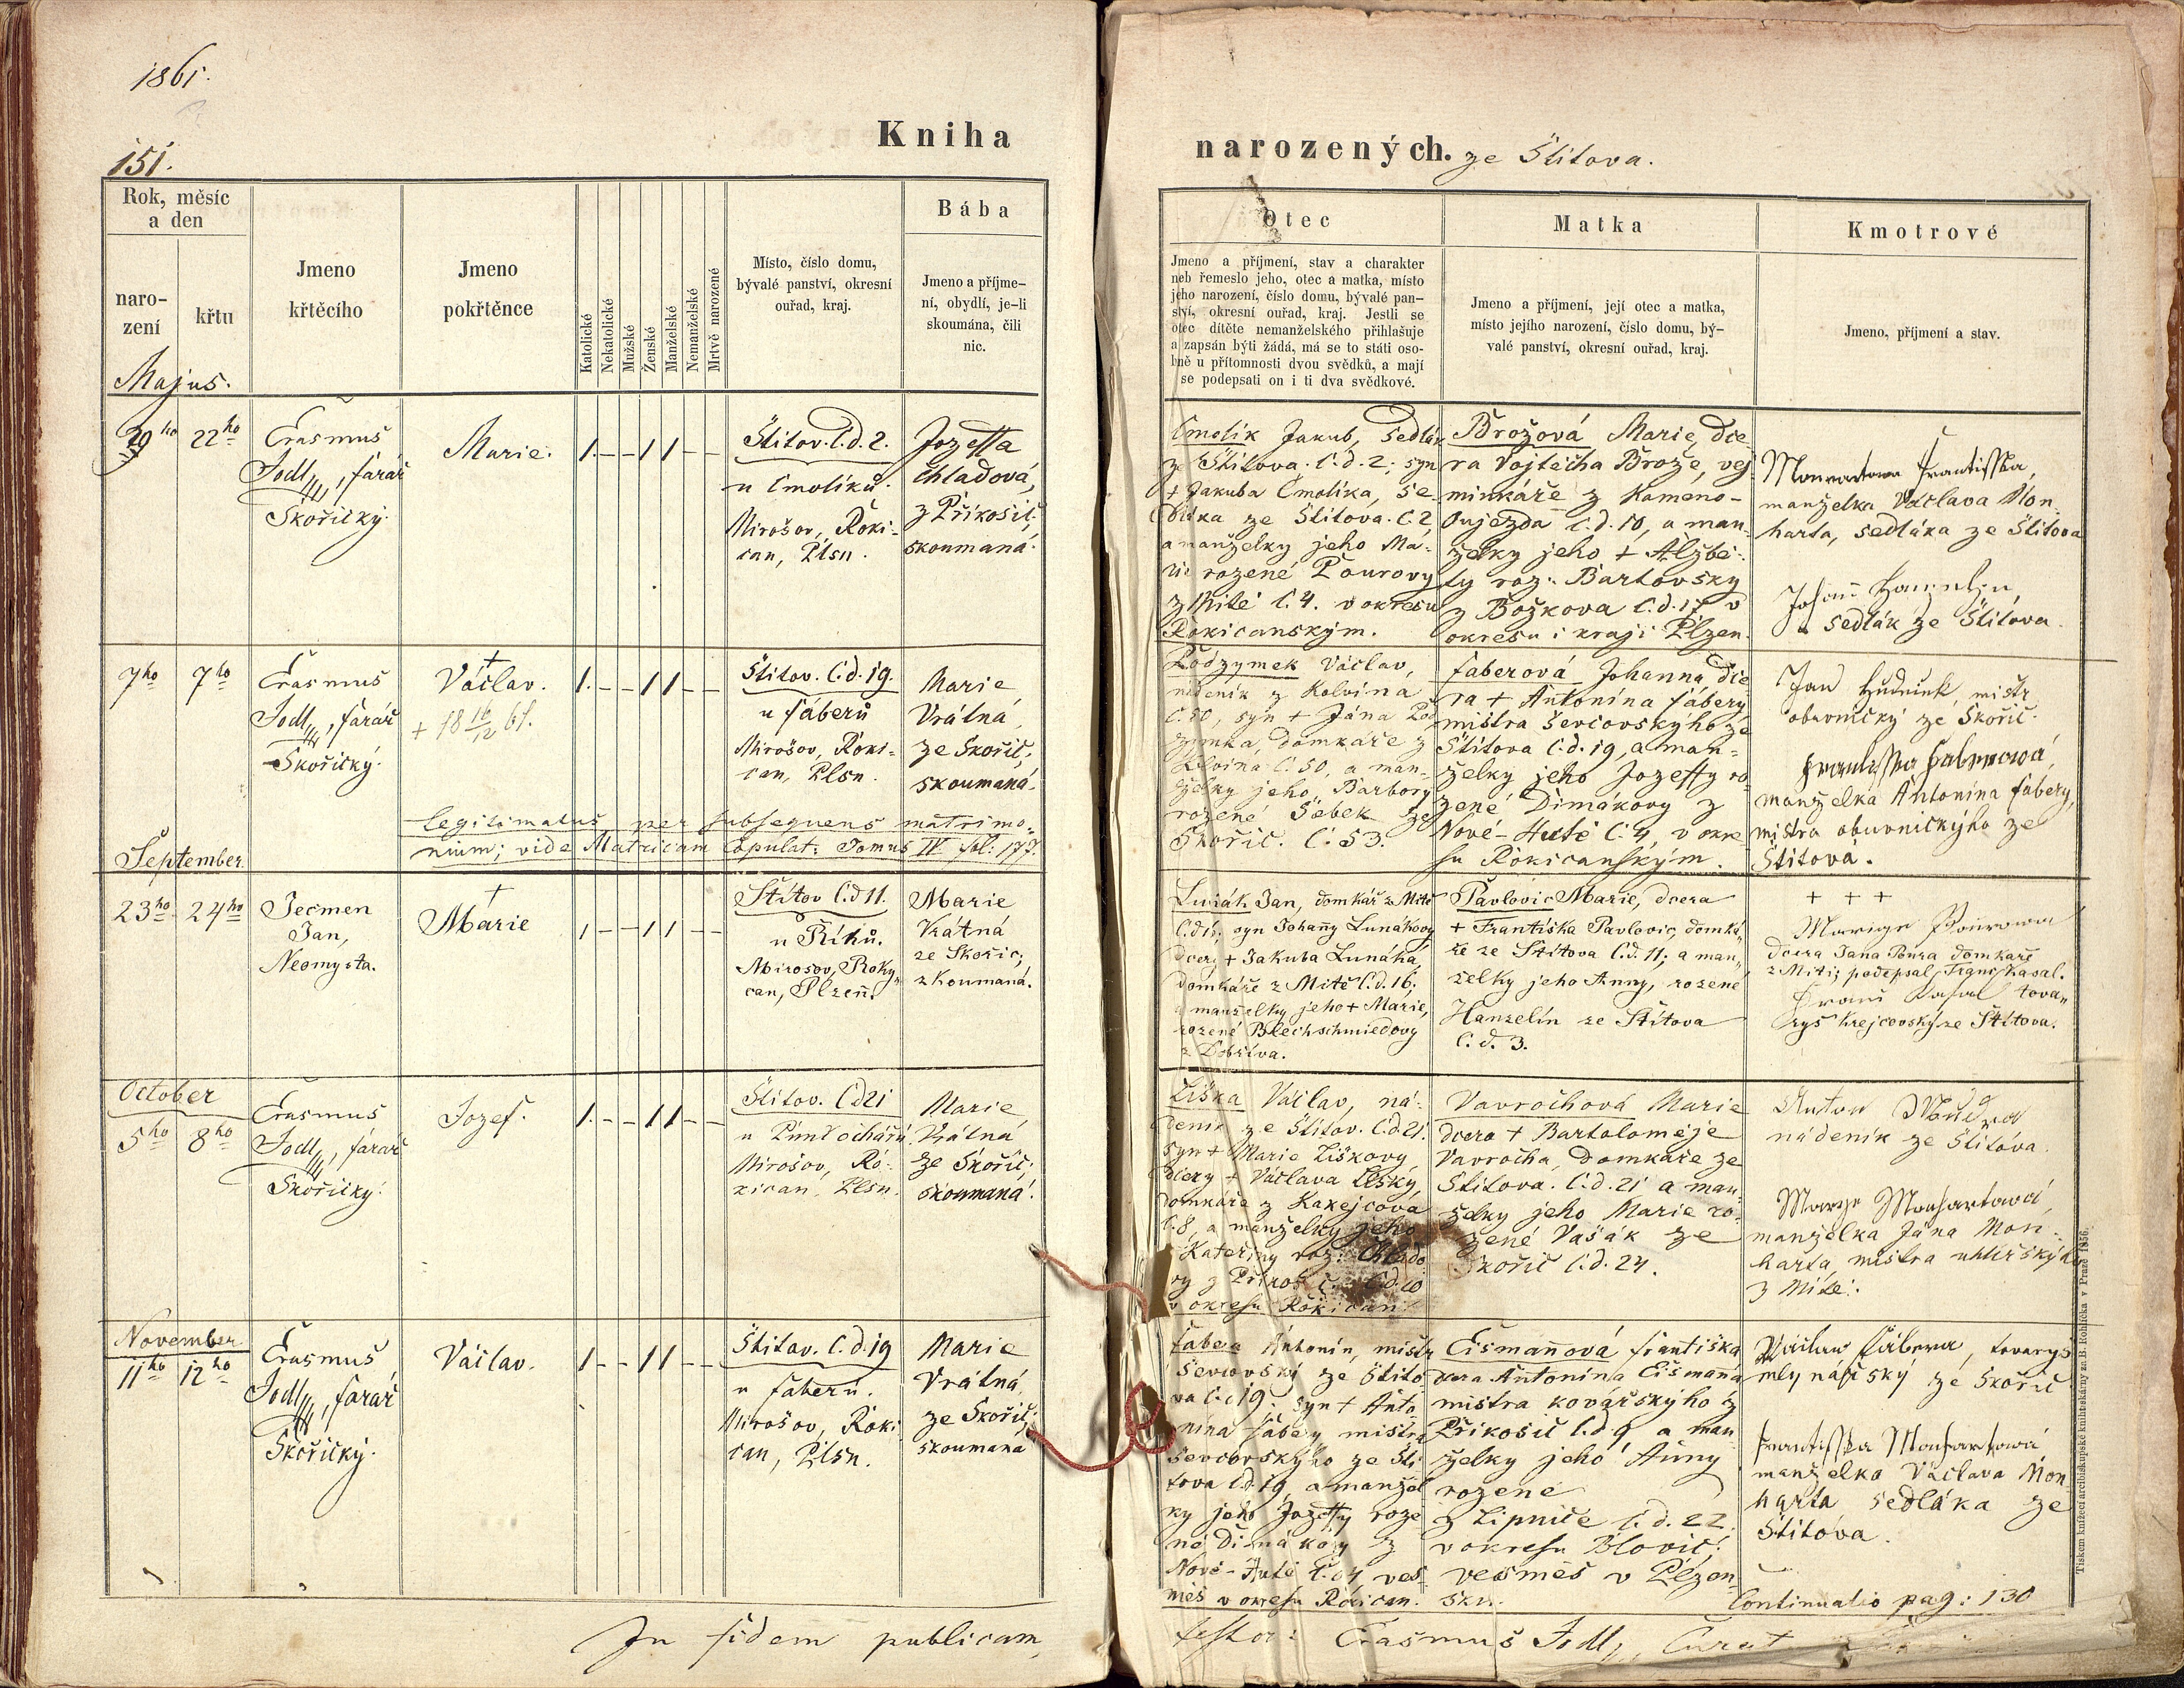 1861.
151.
Kniha
narozených. ze Štítova.
Rok, měsíc
a den
naro-
zení
křtu
Jmeno
křtěcího
Jmeno
pokřtěnce
Katolické
Nekatolické
Mužské
Ženské
Manželské
Nemanželské
Mrtvě narozené
Místo, číslo domu,
bývalé panství, okresní
ouřad, kraj.
Bába
Jmeno a příjme-
ní, obydlí, je-li
skoumána, čili
nic.
Otec
Jmeno a příjmení, stav a charakter
neb řemeslo jeho, otec a matka, místo
jeho narození, číslo domu, bývalé pan-
ství, okresní ouřad, kraj. Jestli se
otec dítěte nemanželského přihlašuje
a zapsán býti žádá, má se to státi oso-
bně u přítomnosti dvou svědků, a mají
se podepsati on i ti dva svědkové.
Matka
Jmeno a příjmení, její otec a matka,
místo jejího narození, číslo domu, bý-
valé panství, okresní ouřad, kraj.
Kmotrové
Jmeno, příjmení a stav.
Majus.
22ho
Erasmus
Jodl, farář
Skořický.
Marie.
1. – – 1 1 – –
Štítov. č.d. 2.
u Cmolíků.
Mirošov, Roki-
can, Plsn.
Jozeffa
Chladová,
z Příkosic,
skoumaná.
Cmolík Jakub, sedlák
ze Štítova. č.d. 2; syn
+ Jakuba Cmolíka, se-
dláka ze Štítova. č. 2,
a manželky jeho Ma-
rie rozené Pourovy
z Mítě č. 4. v okresu
Rokicanským.
Brožová Marie, dce-
ra Vojtěcha Brože, vej-
minkáře z Kameno-
oujezda č.d. 10, a man-
želky jeho + Alžbě-
ty roz. Bartovsky
z Božkova č.d. 17 v
okresu i kraji Plzen.
Františka,
manželka Václava Mon-
harta, sedláka ze Štítova
Johann
sedlák ze Štítova.
7ho 7ho
Erasmus
Jodl, farář
Skořický.
+
Václav.
+ 18 16/12 61.
1. – – 1 1 – –
Štítov. č.d. 19.
u Fáberů
Mirošov, Roki-
can, Plsn.
Marie
Vrátná
ze Skořic,
skoumaná.
legitimatus per subsequens matrimo-
nium; vide Matricam Copulat: Tomus IV fol: 177.
Podzymek Václav,
nádeník z Kolvína
č. 50, syn + Jána Pod-
zymka, domkáře z
Kolvína č. 50, a man-
želky jeho, Barbory
rozené Šebek ze
Skořic. č. 53.
Faberová Johanna dce-
ra + Antonína Fábery
mistra ševcovskýho ze
Štítova č.d. 19, a man-
želky jeho Jozeffy ro-
zené Dimákovy z
Nové-Hutě č. 4, v okre-
su Rokicanským.
Jan Hudeinek mistr
obuvnický ze Skořic.
Františka Faberová,
manželka Antonína Fábery,
mistra obuvnickýho ze
Štítova.
September
23ho 24ho
Ječmen
Jan,
Neomysta.
+
Marie
1 – – 1 1 – –
Štítov č.d 11.
u Říhů.
Mirosov, Roky-
can, Plzeň.
Marie
Vrátná
ze Skořic,
zkoumaná.
Lunák Jan, domkář z Mítě
č.d. 16; syn Johanny Lunákovy
dcery + Jakuba Lunáka,
domkáře z Mítě č.d. 16;
a manželky jeho + Marie,
rozené Blechschmiedovy
z Dobříva.
Pavlovic Marie, dcera
+ Františka Pavlovic, domká-
ře ze Štítova č.d. 11; a man-
želky jeho Anny, rozené
Hanzelín ze Štítova
č. d. 3.
+ + +
Marije Pourowa
dcera Jana Poura domkáře
z Mítě; podepsal Franc. Kasal.
Franc Kasal tova-
ryš krejčovský ze Štítova.
October
5ho 8ho
Erasmus
Jodl, farář
Skořický.
Jozef.
1. – – 1 1 – –
Štítov. č.d 21
u
Mirošov, Ro-
kican, Plsn.
Marie
Vrátná
ze Skořic;
skoumaná.
Liška Václav, ná-
deník ze Štítov. č.d. 21.
syn + Marie Liškovy,
dcery + Václava Lišky,
domkáře z Kakejcova
č. 8, a manželky jeho
Kateřiny roz. Chlado-
vy z Příkosic č.d. 10
v okresu Rokican.
Vavrochová Marie
dcera + Bartoloměje
Vavrocha, domkáře ze
Štítova. č.d. 21 a man-
želky jeho Marie ro-
zené Vašák ze
Skořic č.d. 24.
Anton
nádeník ze Štítova.
Marye Monhartová,
manželka Jána Mon-
harta, mistra uhlířskýho
z Mítě.
November
11ho 12ho
Erasmus
Jodl, farář
Skořický.
Václav.
1 – – 1 1 – –
Štítov. č.d. 19
u Faberů.
Mirošov, Roki-
can, Plsn.
Marie
Vrátná
ze Skořic,
skoumaná
Fabera Antonín, mistr
ševcovský ze Štíto-
va č. 19. syn + Anto-
nína Fábery mistra
ševcovskýho ze Ští-
tova č.d. 19, a manžel-
ky jeho Jozeffy roze-
né Dimákovy z
Nové-Hutě č. 4 ves-
měs v okresu Rokican.
Eišmanová Františka
dcera Antonína Eišmana
mistra kovářskýho z
Příkosic č.d. 9 a man-
želky jeho Anny
rozené
z Lipnice č.d. 22.
v okresu Blovic.
vesměs v Plzen-
sku.
Václaw Fábera, tovaryš
mlynářský ze Skořic
Františka Monhartowá
manželka Václava Mon-
harta sedláka ze
Štítova.
Continuatio pag: 130
In fidem publicam,
testor: Erasmus Jodl, Curat
Tiskem knížecí arcibiskupské knihtiskárny za B. Rohlíčka v Praze 1856.